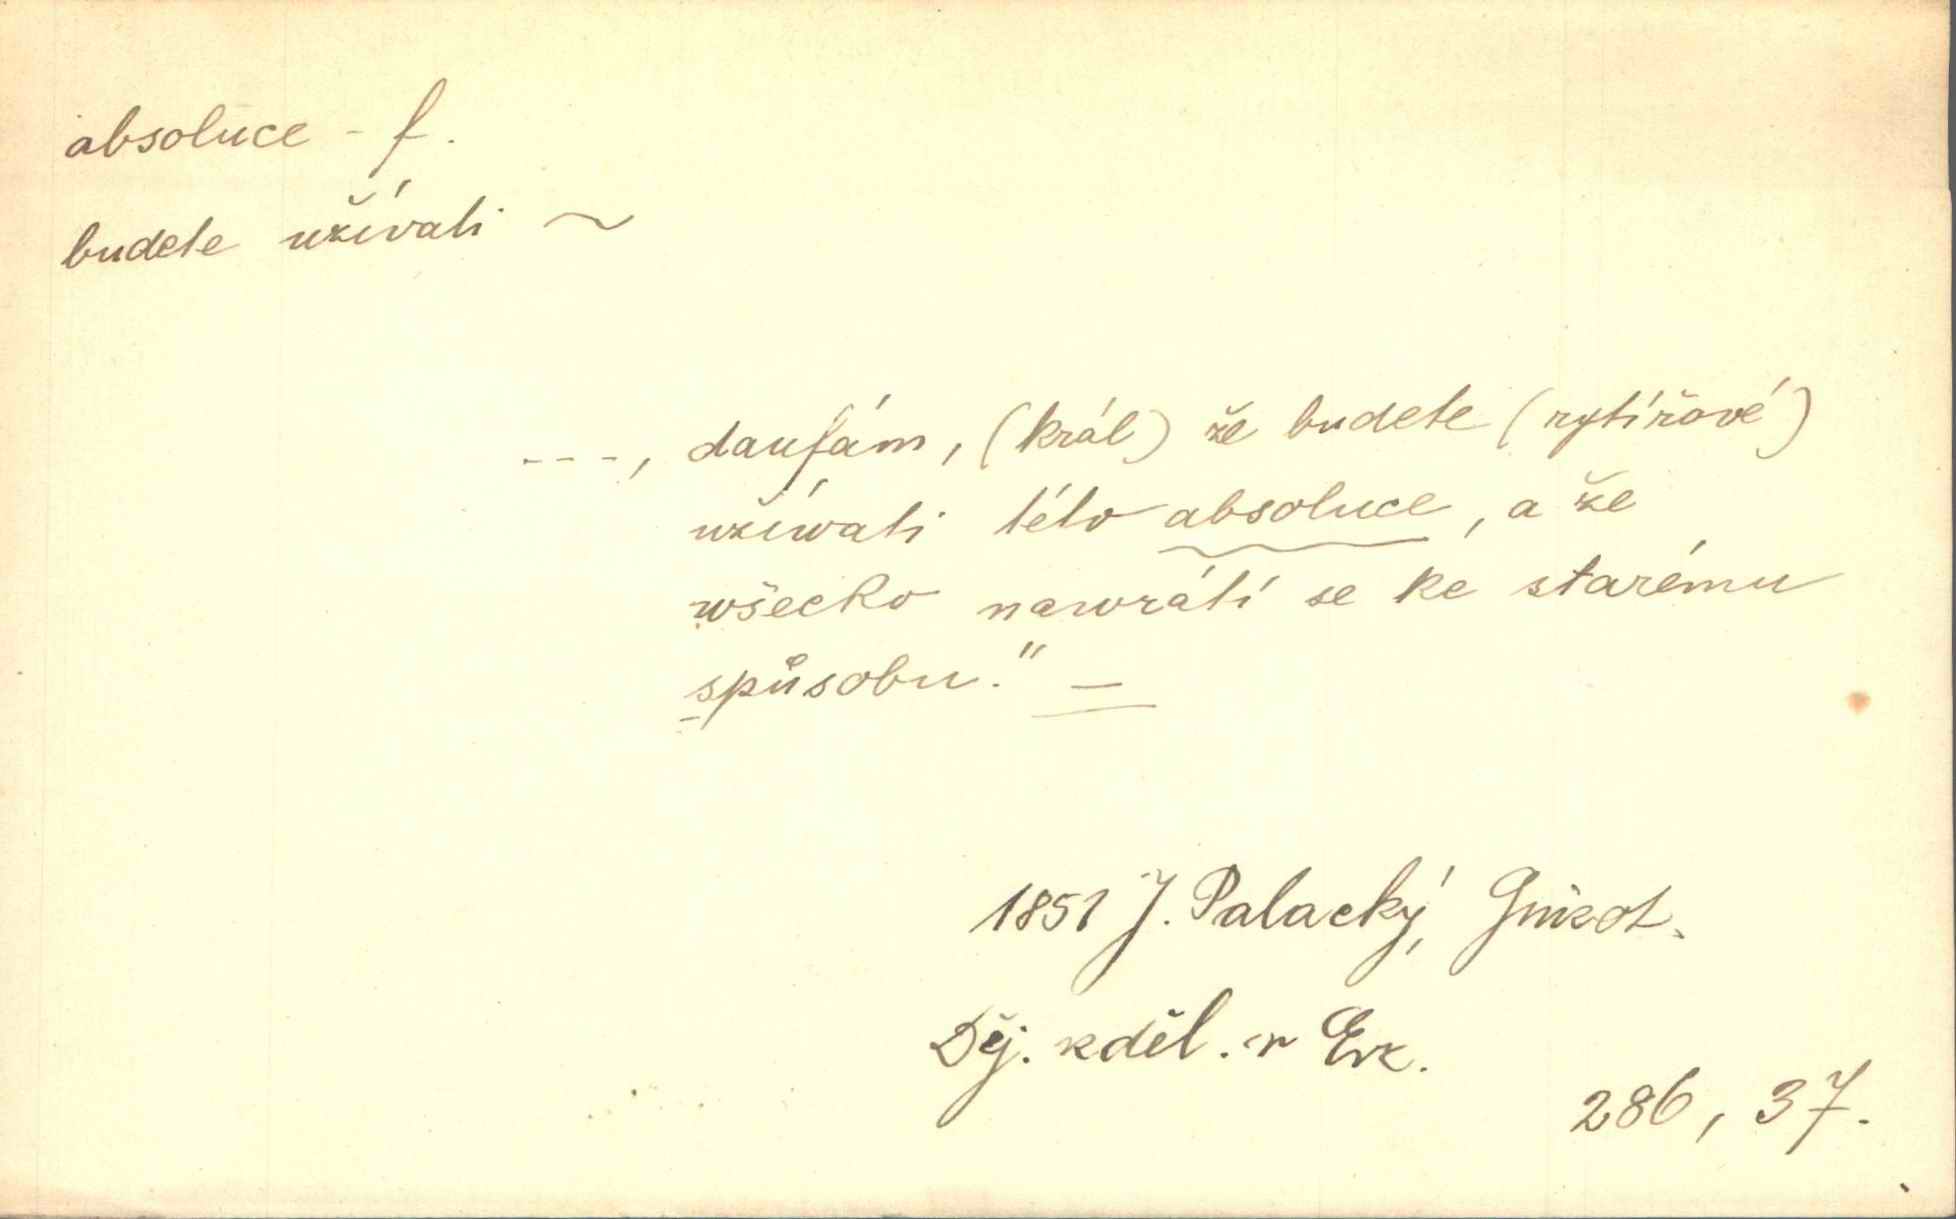 absoluce - f.
budete užívati ~
---, daufám, (král) že budete (rytířové)
užíwati této absoluce, a že
wšecko nawrátí se ke starému
spůsobu." —
1851 J. Palacký, Guizot.
Děj. vzděl. v Evr.
286, 37.